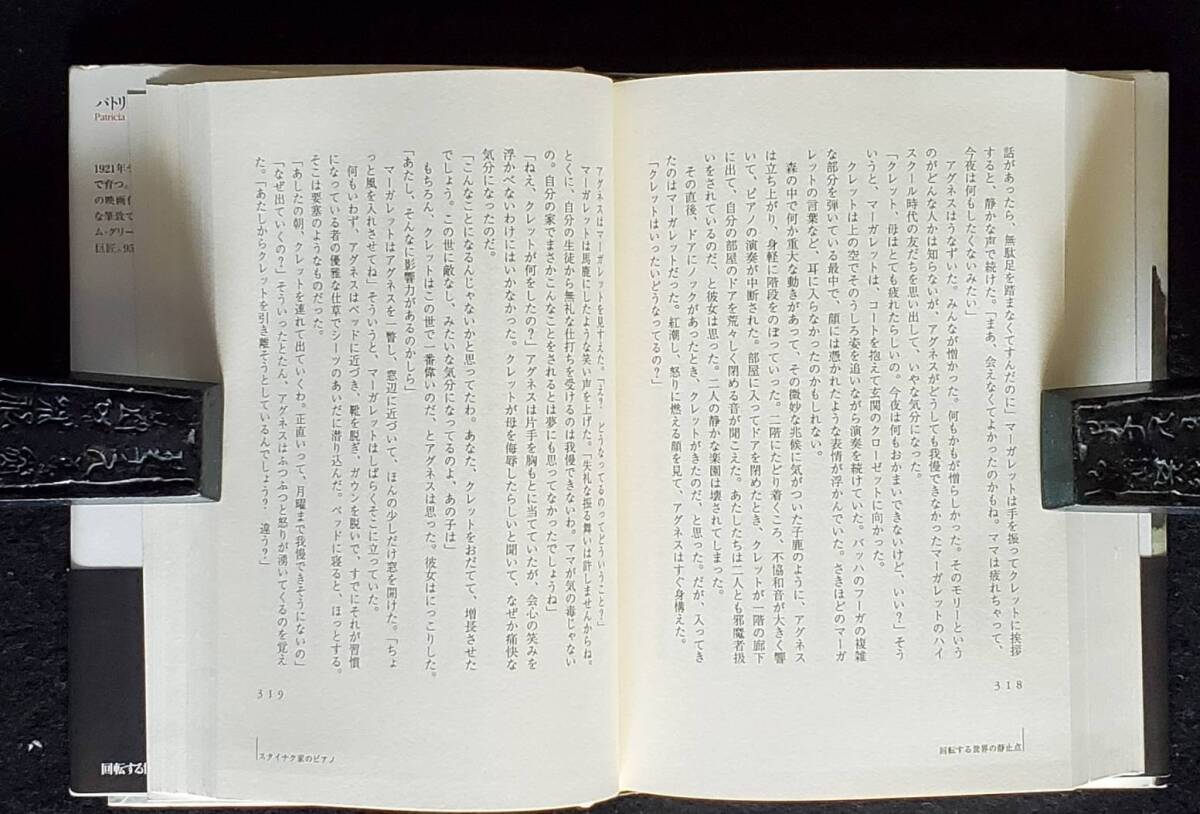 話があったら、無駄足を踏まなくてすんだのに」マーガレットは手を振ってクレットに挨拶
すると、静かな声で続けた。「まあ、会えなくてよかったのかもね。ママは疲れちゃって、
今夜は何もしたくないみたい」
アグネスはうなずいた。みんなが憎かった。何もかもが憎らしかった。そのモリーという
のがどんな人かは知らないが、アグネスがどうしても我慢できなかったマーガレットのハイ
スクール時代の友だちを思い出して、いやな気分になった。
「クレット、母はとても疲れたらしいの。今夜は何もおかまいできないけど、いい？」そう
いうと、マーガレットは、コートを抱えて玄関のクローゼットに向かった。
クレットは上の空でそのうしろ姿を追いながら演奏を続けていた。バッハのフーガの複雑
な部分を弾いている最中で、顔には憑かれたような表情が浮かんでいた。さきほどのマーガ
レットの言葉など、耳に入らなかったのかもしれない。
森の中で何か重大な動きがあって、その微妙な兆候に気がついた子鹿のように、アグネス
は立ち上がり、身軽に階段をのぼっていった。二階にたどり着くころ、不協和音が大きく響
いて、ピアノの演奏が中断された。部屋に入ってドアを閉めたとき、クレットが一階の廊下
に出て、自分の部屋のドアを荒々しく閉める音が聞こえた。あたしたちは二人とも邪魔者扱
いをされているのだ、と彼女は思った。二人の静かな楽園は壊されてしまった。
その直後、ドアにノックがあったとき、クレットがきたのだ、と思った。だが、入ってき
たのはマーガレットだった。紅潮し、怒りに燃える顔を見て、アグネスはすぐ身構えた。
「クレットはいったいどうなってるの？」
318
回転する世界の静止点
アグネスはマーガレットを見すえた。「え？ どうなってるのってどういうこと？」
マーガレットは馬鹿にしたような笑い声を上げた。「失礼な振る舞いは許しませんからね。
とくに、自分の生徒から無礼な仕打ちを受けるのは我慢できないわ。ママが気の毒じゃない
の。自分の家でまさかこんなことをされるとは夢にも思ってなかったでしょうね」
「ねえ、クレットが何をしたの？」アグネスは片手を胸もとに当てていたが、会心の笑みを
浮かべないわけにはいかなかった。クレットが母を侮辱したらしいと聞いて、なぜか痛快な
気分になったのだ。
「こんなことになるんじゃないかと思ってたわ。あなた、クレットをおだてて、増長させた
でしょう。この世に敵なし、みたいな気分になってるのよ、あの子は」
もちろん、クレットはこの世で一番偉いのだ、とアグネスは思った。彼女はにっこりした。
「あたし、そんなに影響力があるのかしら」
マーガレットはアグネスを一瞥し、窓辺に近づいて、ほんの少しだけ窓を開けた。「ちょ
っと風を入れさせてね」そういうと、マーガレットはしばらくそこに立っていた。
何もいわず、アグネスはベッドに近づき、靴を脱ぎ、ガウンを脱いで、すでにそれが習慣
になっている者の優雅な仕草でシーツのあいだに潜り込んだ。ベッドに寝ると、ほっとする。
そこは要塞のようなものだった。
「あしたの朝、クレットを連れて出ていくわ。正直いって、月曜まで我慢できそうにないの」
「なぜ出ていくの？」そういったとたん、アグネスはふつふつと怒りが湧いてくるのを覚え
た。「あたしからクレットを引き離そうとしているんでしょう？ 違う？」
319
スタイナク家のピアノ
パトリ
Patricia
1921年
で育つ。
の映画
な筆致で
ム・グリー
巨匠。95
回転する